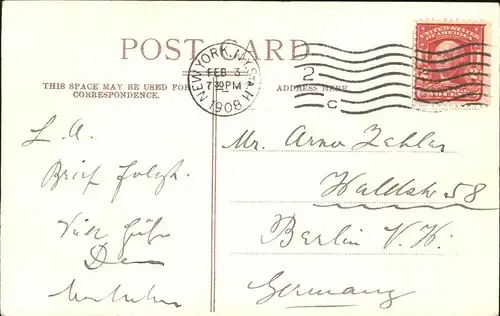 POST CARD
NEW YORK, N.Y. STA.H
FEB 3
7 30 PM
1908
2
C
UNITED STATES
OF AMERICA
THIS SPACE MAY BE USED FOR
CORRESPONDENCE.
ADDRESS HERE
L. A.
Brief folgt.
Viele Grüße
Dein
Mr. Arno Zahlar
Waldstr 58
Berlin N. W.
Germany